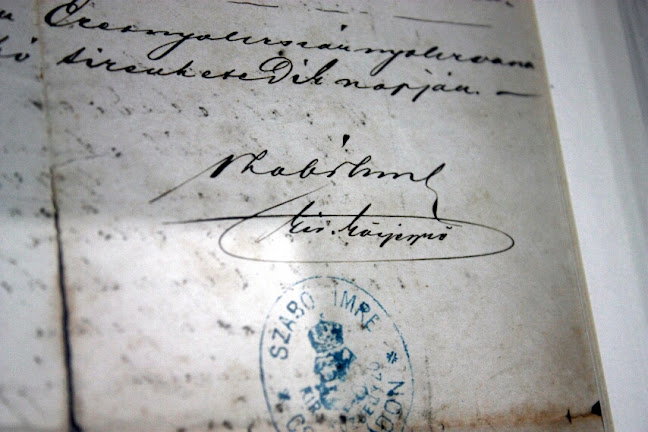 Ezernyolczszáznyolczvana
tizenkettedik napján. —
Szabó Imre
kir. közjegyző
* SZABÓ IMRE *
KIR. KÖZJEGYZŐ